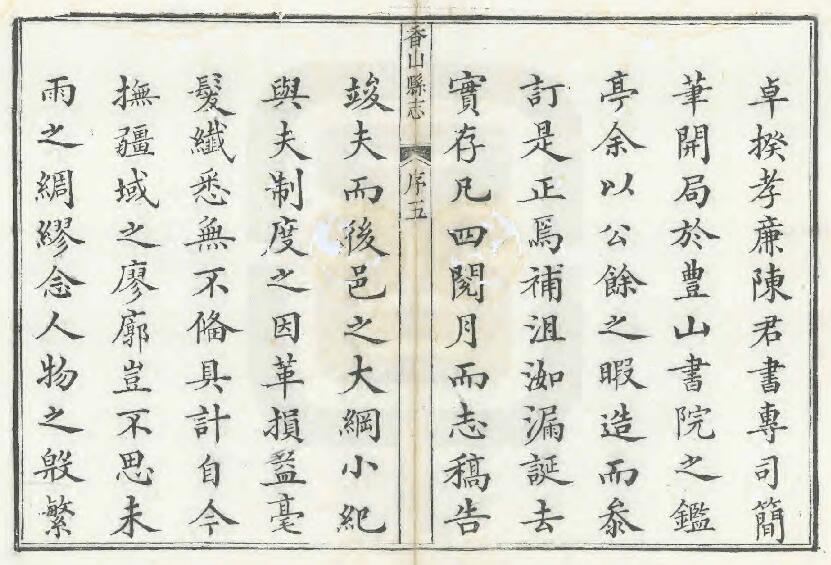 卓揆孝廉陳君書專司簡
筆開局於豊山書院之鑑
亭余以公餘之暇造而叅
訂是正焉補沮洳漏誕去
實存凡四閱月而志稿告
香山縣志 序五
竣夫而後邑之大綱小紀
與夫制度之因革損益毫
髮纖悉無不俻具計自今
撫疆域之廖廓豈不思未
雨之綢繆念人物之殷繁